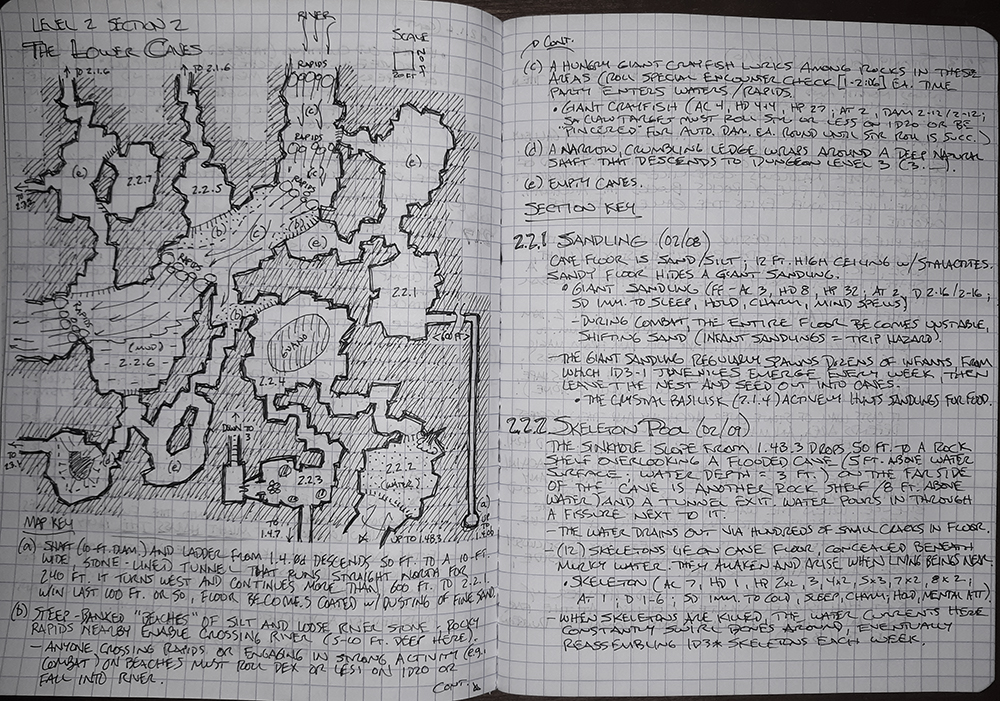 LEVEL 2 SECTION 2
THE LOWER CAVES
RIVER
SCALE
20 FT
20 FT
TO 2.1.6
TO 2.1.6
RAPIDS
(c)
RAPIDS
(c)
RAPIDS
(e)
2.2.7
2.2.5
(e)
(b)
(c)
(e)
RAPIDS
2.2.1
RAPIDS
(MUD)
2.2.6
GUANO
2.2.4
(e)
DOWN TO 3
2.2.3
2.2.2
(WATER)
TO 1.4.7
UP TO 1.48.3
(a)
MAP KEY
(a) SHAFT (10-FT. DIAM.) AND LADDER FROM 1.4.08 DESCENDS 50 FT. TO A 10-FT.
WIDE, STONE-LINED TUNNEL THAT RUNS STRAIGHT NORTH FOR
240 FT. IT TURNS WEST AND CONTINUES MORE THAN 600 FT. TO 2.2.1.
W/IN LAST 100 FT. OR SO, FLOOR BECOMES COATED W/ DUSTING OF FINE SAND.
(b) STEEP-BANKED "BEACHES" OF SILT AND LOOSE RIVER STONE; ROCKY
RAPIDS NEARBY ENABLE CROSSING RIVER (5-10 FT. DEEP HERE).
- ANYONE CROSSING RAPIDS OR ENGAGING IN STRONG ACTIVITY (E.G.
COMBAT) ON BEACHES MUST ROLL DEX OR LESS ON 1D20 OR
FALL INTO RIVER.
CONT.
CONT.
(c) A HUNGRY GIANT CRAYFISH LURKS AMONG ROCKS IN THESE
AREAS (ROLL SPECIAL ENCOUNTER CHECK [1-2:D6] EA. TIME
PARTY ENTERS WATERS/RAPIDS.
• GIANT CRAYFISH (AC 4, HD 4+4, HP 27; AT 2, DAM 2-12/2-12;
SA CLAW TARGET MUST ROLL STR OR LESS ON 1D20 OR BE
"PINCERED" FOR AUTO. DAM. EA. ROUND UNTIL STR ROLL IS SUCC.)
(d) A NARROW, CRUMBLING LEDGE WRAPS AROUND A DEEP NATURAL
SHAFT THAT DESCENDS TO DUNGEON LEVEL 3 (3.__).
(e) EMPTY CAVES.
SECTION KEY
2.2.1 SANDLING (02/08)
CAVE FLOOR IS SAND/SILT; 12 FT. HIGH CEILING W/ STALACTITES.
SANDY FLOOR HIDES A GIANT SANDLING.
• GIANT SANDLING (FF - AC 3, HD 8, HP 32; AT 2, D 2-16/2-16;
SD IMM. TO SLEEP, HOLD, CHARM, MIND SPELLS)
- DURING COMBAT, THE ENTIRE FLOOR BECOMES UNSTABLE,
SHIFTING SAND (INFANT SANDLINGS = TRIP HAZARD).
- THE GIANT SANDLING REGULARLY SPAWNS DOZENS OF INFANTS FROM
WHICH 1D3-1 JUVENILES EMERGE EVERY WEEK, THEN
LEAVE THE NEST AND SEED OUT INTO CAVES.
• THE CRYSTAL BASILISK (2.1.4) ACTIVELY HUNTS SANDLINGS FOR FOOD.
2.2.2 SKELETON POOL (02/09)
THE SINKHOLE SLOPE FROM 1.48.3 DROPS 50 FT. TO A ROCK
SHELF OVERLOOKING A FLOODED CAVE (5 FT. ABOVE WATER
SURFACE; WATER DEPTH = 3 FT.). ON THE FAR SIDE
OF THE CAVE IS ANOTHER ROCK SHELF (8 FT. ABOVE
WATER) AND A TUNNEL EXIT. WATER POURS IN THROUGH
A FISSURE NEXT TO IT.
- THE WATER DRAINS OUT VIA HUNDREDS OF SMALL CRACKS IN FLOOR.
- (12) SKELETONS LIE ON CAVE FLOOR, CONCEALED BENEATH
MURKY WATER. THEY AWAKEN AND ARISE WHEN LIVING BEINGS NEAR.
• SKELETON (AC 7, HD 1, HP 2x2, 3, 4x2, 5x3, 7x2, 8x2;
AT 1; D 1-6; SD IMM. TO COLD, SLEEP, CHARM, HOLD, MENTAL ATT).
- WHEN SKELETONS ARE KILLED, THE WATER CURRENTS HERE
CONSTANTLY SWIRL BONES AROUND, EVENTUALLY
REASSEMBLING 1D3* SKELETONS EACH WEEK.